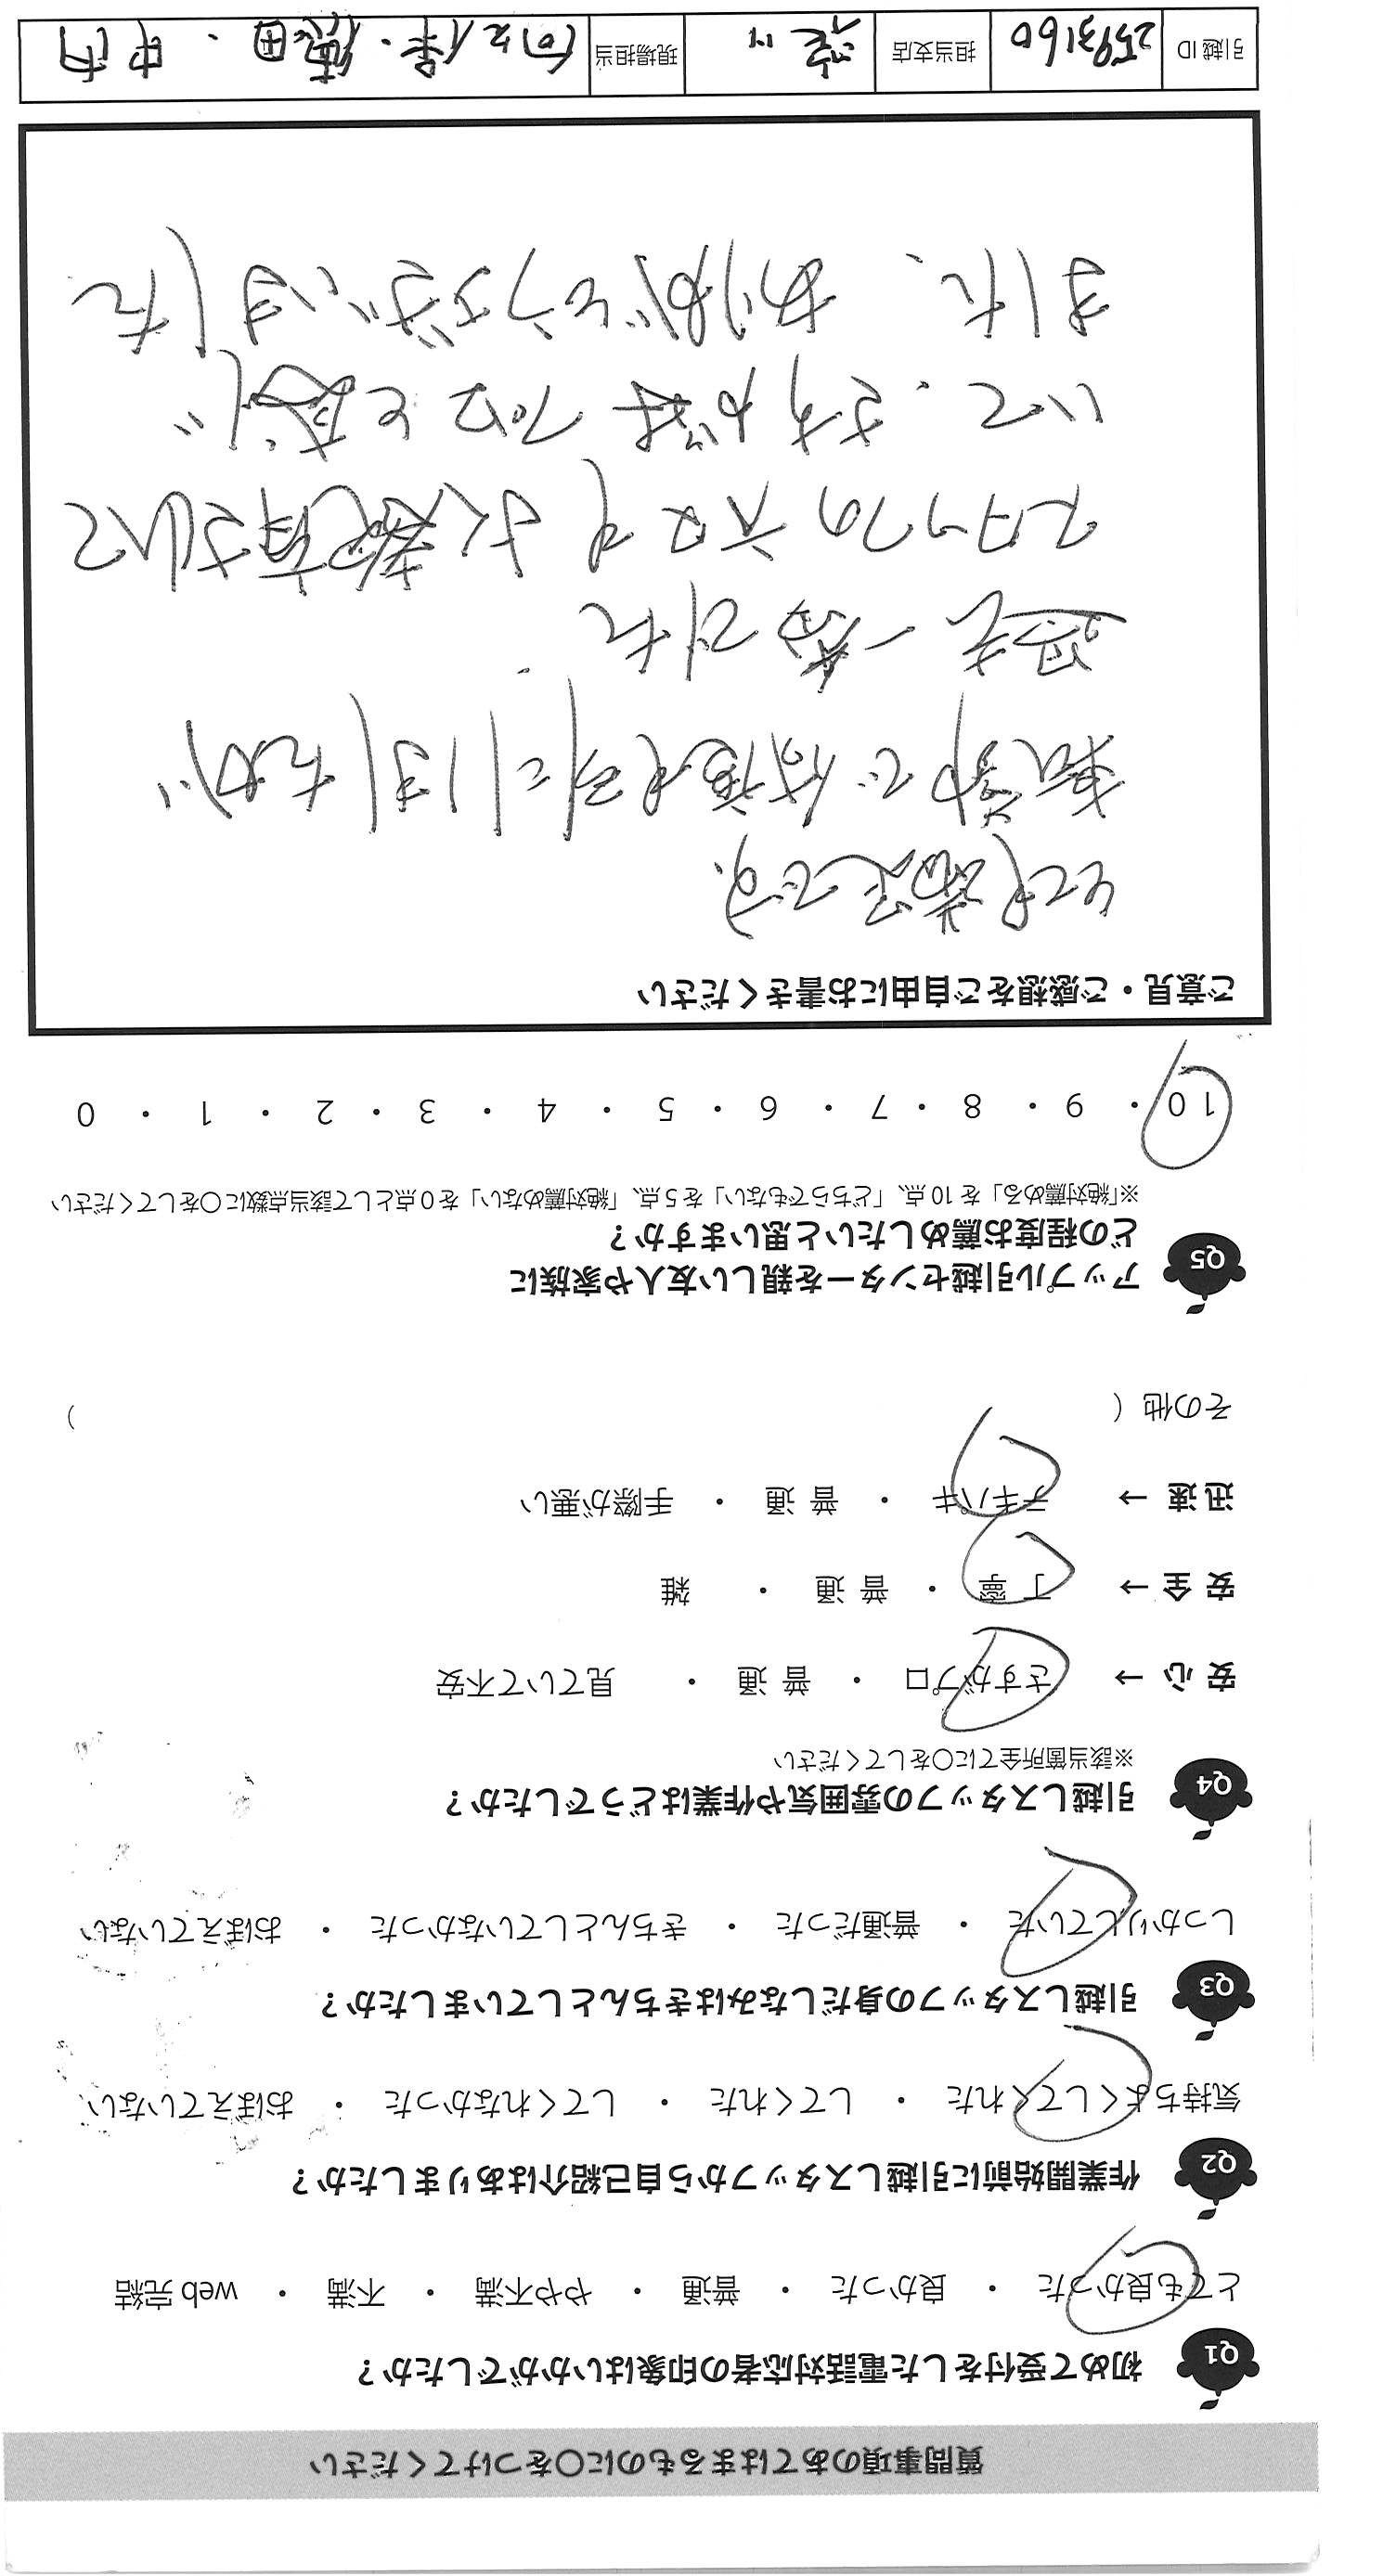 質問事項のあてはまるものに○をつけてください
Q1 初めて受付をした電話対応者の印象はいかがでしたか？
とても良かった ・ 良かった ・ 普通 ・ やや不満 ・ 不満 ・ web 完結
Q2 作業開始前に引越しスタッフから自己紹介はありましたか？
気持ちよくしてくれた ・ してくれた ・ してくれなかった ・ おぼえていない
Q3 引越しスタッフの身だしなみはきちんとしていましたか？
しっかりしていた ・ 普通だった ・ きちんとしていなかった ・ おぼえていない
Q4 引越しスタッフの雰囲気や作業はどうでしたか？
※該当箇所全てに○をしてください
安心 → さすがプロ ・ 普通 ・ 見ていて不安
安全 → 丁寧 ・ 普通 ・ 雑
迅速 → テキパキ ・ 普通 ・ 手際が悪い
その他 （ ）
Q5 アップル引越センターを親しい友人や家族に
どの程度お薦めしたいと思いますか？
※「絶対薦める」を 10 点、「どちらでもない」を 5 点、「絶対薦めない」を 0 点として該当点数に○をしてください
10 ・ 9 ・ 8 ・ 7 ・ 6 ・ 5 ・ 4 ・ 3 ・ 2 ・ 1 ・ 0
ご意見・ご感想をご自由にお書きください
とても満足です。
転勤で何度も引こしましたが
過去一番でした。
スタッフの六人もよく教育されて
いて、さすがはプロと感じ
ました。ありがとうございました
引越 ID 2593160 担当支店 現場担当 佐々木・徳田・中内